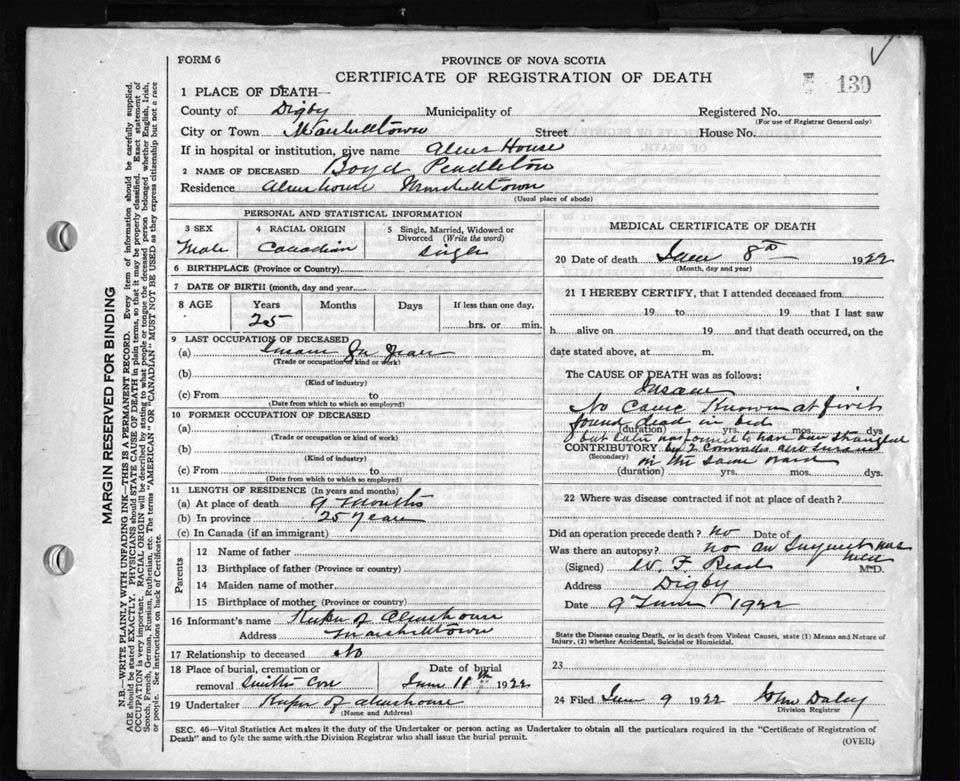 FORM 6
PROVINCE OF NOVA SCOTIA
CERTIFICATE OF REGISTRATION OF DEATH
139
1 PLACE OF DEATH—
County of Digby Municipality of Registered No.
(For use of Registrar General only)
City or Town Marshalltown Street House No.
If in hospital or institution, give name Alms House
2 NAME OF DECEASED Boyd Pendleton
Residence Alms house Marshalltown
(Usual place of abode)
PERSONAL AND STATISTICAL INFORMATION
3 SEX
Male
4 RACIAL ORIGIN
Canadian
5 Single, Married, Widowed or Divorced (Write the word)
Single
6 BIRTHPLACE (Province or Country)
7 DATE OF BIRTH (month, day and year)
8 AGE Years Months Days If less than one day,
25 hrs. or min.
9 LAST OCCUPATION OF DECEASED
(a) Insane
(Trade or occupation or kind of work)
(b)
(Kind of industry)
(c) From to
(Date from which to which so employed)
10 FORMER OCCUPATION OF DECEASED
(a)
(Trade or occupation or kind of work)
(b)
(Kind of industry)
(c) From to
(Date from which to which so employed)
11 LENGTH OF RESIDENCE (In years and months)
(a) At place of death 9 Months
(b) In province 25 Years
(c) In Canada (if an immigrant)
Parents
12 Name of father
13 Birthplace of father (Province or country)
14 Maiden name of mother
15 Birthplace of mother (Province or country)
16 Informant's name Keeper of Almshouse
Address Marshalltown
17 Relationship to deceased No
18 Place of burial, cremation or removal Smiths Cove
Date of burial June 11th 1922
19 Undertaker Keeper of almshouse
(Name and Address)
MEDICAL CERTIFICATE OF DEATH
20 Date of death June 8th 1922
(Month, day and year)
21 I HEREBY CERTIFY, that I attended deceased from
19 to 19 that I last saw
h alive on 19 and that death occurred, on the
date stated above, at m.
The CAUSE OF DEATH was as follows:
Insane
No Cause Known at first
found dead in bed
(duration) yrs. mos. dys
but later was found to have been strangled
CONTRIBUTORY by 2 Comrades also Insane
(Secondary) in the same ward
(duration) yrs. mos. dys.
22 Where was disease contracted if not at place of death?
Did an operation precede death? no Date of
Was there an autopsy? no an Inquest was held
(Signed) W. F. Read M.D.
Address Digby
Date 9 June 1922
State the Disease causing Death, or in death from Violent Causes, state (1) Means and Nature of
Injury, (2) whether Accidental, Suicidal or Homicidal.
23
24 Filed June 9 1922 John Daley
Division Registrar
SEC. 46—Vital Statistics Act makes it the duty of the Undertaker or person acting as Undertaker to obtain all the particulars required in the "Certificate of Registration of
Death" and to fyle the same with the Division Registrar who shall issue the burial permit.
(OVER)
MARGIN RESERVED FOR BINDING
N.B.—WRITE PLAINLY WITH UNFADING INK—THIS IS A PERMANENT RECORD. Every item of information should be carefully supplied.
AGE should be stated EXACTLY. PHYSICIANS should STATE CAUSE OF DEATH in plain terms, so that it may be properly classified. Exact statement of
OCCUPATION is very important. RACIAL ORIGIN will be described by stating to what people or tongue the deceased person belonged whether English, Irish,
Scotch, French, German, Russian, Ruthenian, etc. The terms "AMERICAN" or "CANADIAN" MUST NOT BE USED as they express citizenship but not a race
or people. See instructions on back of Certificate.